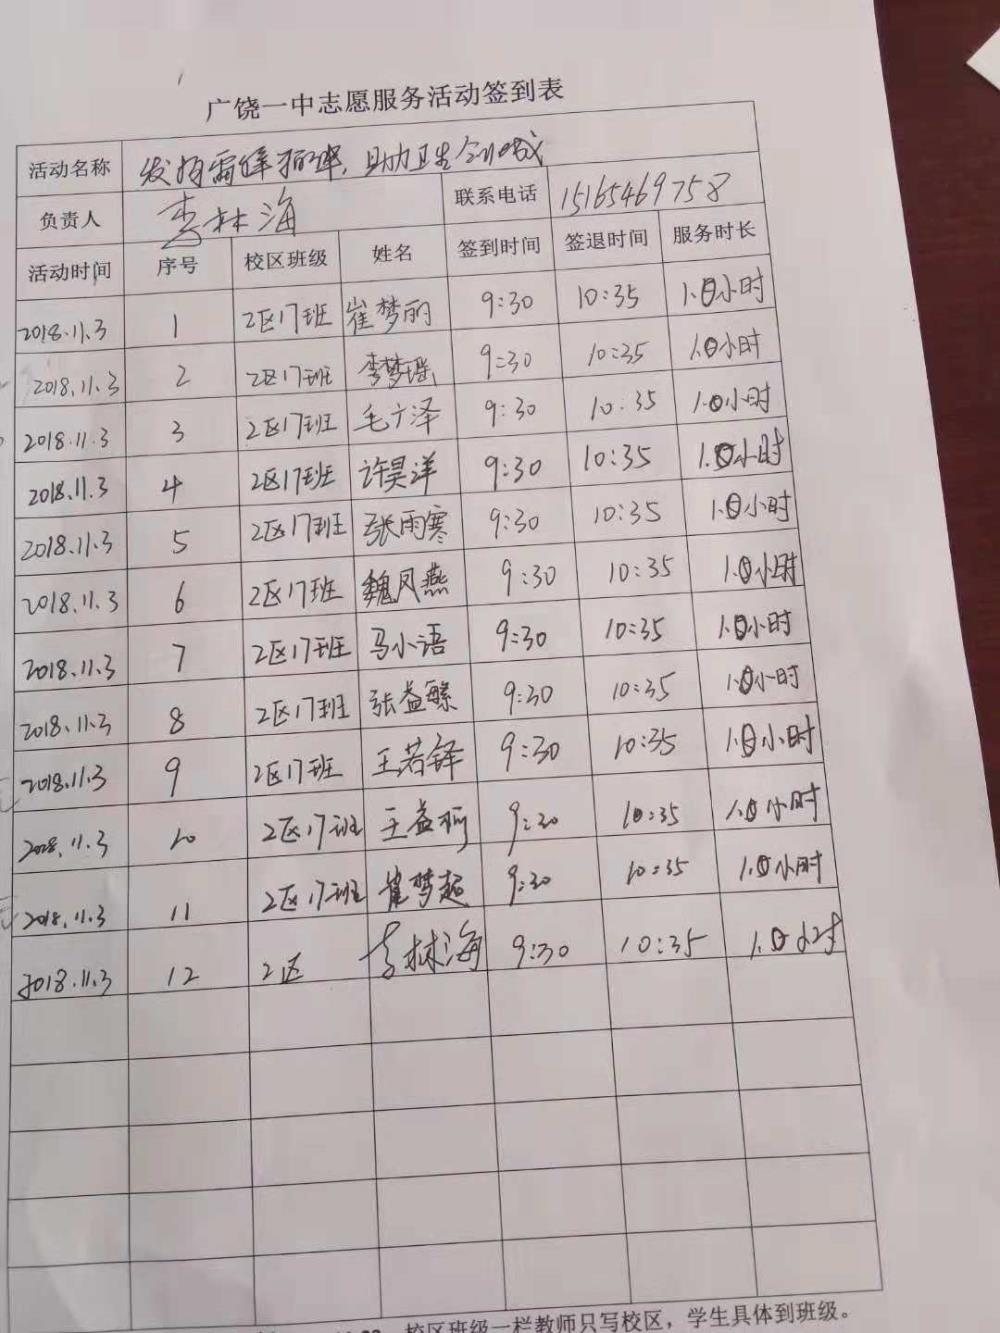 广饶一中志愿服务活动签到表
活动名称 发扬雷锋精神,助卫生创城
负责人 李林海 联系电话 15165469758
活动时间 序号 校区班级 姓名 签到时间 签退时间 服务时长
2018.11.3 1 2区17班 崔梦雨 9:30 10:35 1.0小时
2018.11.3 2 2区17班 李梦瑶 9:30 10:35 1.0小时
2018.11.3 3 2区17班 毛广泽 9:30 10:35 1.0小时
2018.11.3 4 2区17班 许昊洋 9:30 10:35 1.0小时
2018.11.3 5 2区17班 张雨寒 9:30 10:35 1.0小时
2018.11.3 6 2区17班 魏凤燕 9:30 10:35 1.0小时
2018.11.3 7 2区17班 马小语 9:30 10:35 1.0小时
2018.11.3 8 2区17班 张益 9:30 10:35 1.0小时
2018.11.3 9 2区17班 王若铎 9:30 10:35 1.0小时
2018.11.3 10 2区17班 王益 9:30 10:35 1.0小时
2018.11.3 11 2区17班 崔梦超 9:30 10:35 1.0小时
2018.11.3 12 2区 李林海 9:30 10:35 1.0小时
校区班级一栏教师只写校区,学生具体到班级。